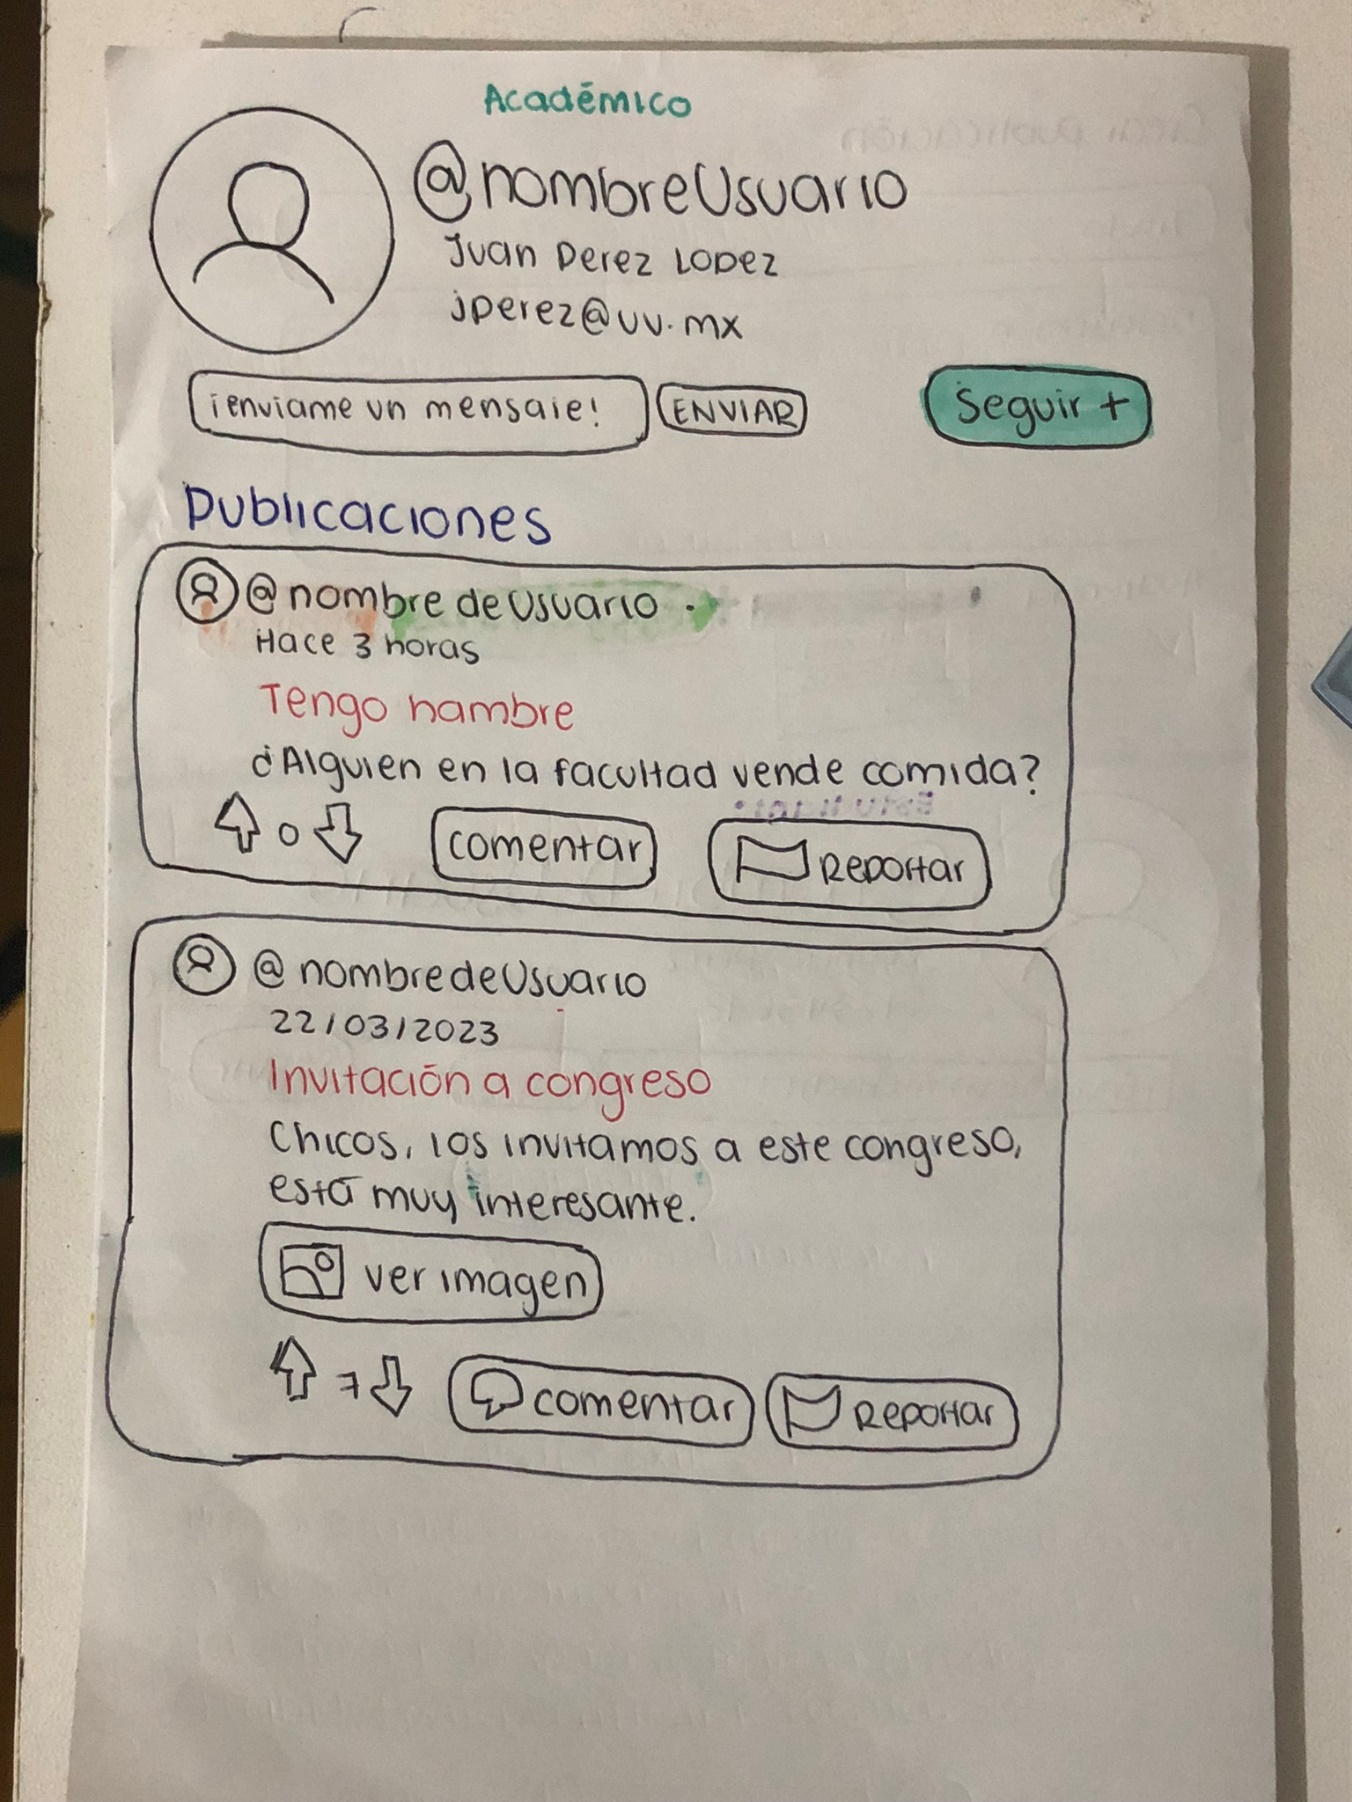 Académico
@nombreUsuario
Juan Perez Lopez
jperez@uv.mx
¡enviame un mensaje!
ENVIAR
Seguir +
Publicaciones
@nombre de Usuario .
Hace 3 horas
Tengo hambre
¿Alguien en la facultad vende comida?
0
comentar
Reportar
@nombredeUsuario
22/03/2023
Invitación a congreso
Chicos, los invitamos a este congreso,
está muy interesante.
ver imagen
7
comentar
Reportar